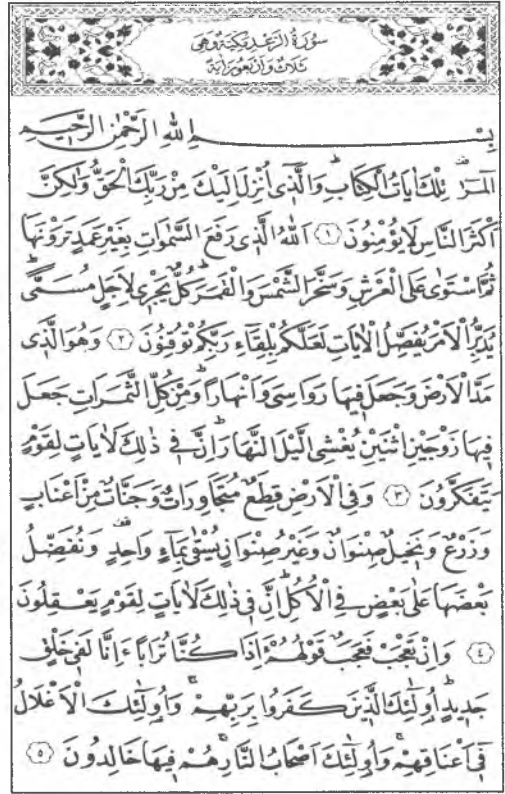 سُورَةُ الرَّعْدِ مَكِّيَّةٌ وَهِىَ
ثَلَاثٌ وَاَرْبَعُونَ اٰيَةً
بِسْــــــمِ اللّٰهِ الرَّحْمٰنِ الرَّحٖيمِ
الٓمٓرٰ تِلْكَ اٰيَاتُ الْكِتَابِۜ وَالَّذٖٓى اُنْزِلَ اِلَيْكَ مِنْ رَبِّكَ الْحَقُّ وَلٰكِنَّ
اَكْثَرَ النَّاسِ لَا يُؤْمِنُونَ ﴿١﴾ اَللّٰهُ الَّذٖى رَفَعَ السَّمٰوَاتِ بِغَيْرِ عَمَدٍ تَرَوْنَهَا
ثُمَّ اسْتَوٰى عَلَى الْعَرْشِ وَسَخَّرَ الشَّمْسَ وَالْقَمَرَۜ كُلٌّ يَجْرٖى لِاَجَلٍ مُسَمًّىۜ
يُدَبِّرُ الْاَمْرَ يُفَصِّلُ الْاٰيَاتِ لَعَلَّكُمْ بِلِقَٓاءِ رَبِّكُمْ تُوقِنُونَ ﴿٢﴾ وَهُوَ الَّذٖى
مَدَّ الْاَرْضَ وَجَعَلَ فٖيهَا رَوَاسِىَ وَاَنْهَارًاۜ وَمِنْ كُلِّ الثَّمَرَاتِ جَعَلَ
فٖيهَا زَوْجَيْنِ اثْنَيْنِ يُغْشِى الَّيْلَ النَّهَارَۜ اِنَّ فٖى ذٰلِكَ لَاٰيَاتٍ لِقَوْمٍ
يَتَفَكَّرُونَ ﴿٣﴾ وَفِى الْاَرْضِ قِطَعٌ مُتَجَاوِرَاتٌ وَجَنَّاتٌ مِنْ اَعْنَابٍ
وَزَرْعٌ وَنَخٖيلٌ صِنْوَانٌ وَغَيْرُ صِنْوَانٍ يُسْقٰى بِمَٓاءٍ وَاحِدٍ وَنُفَضِّلُ
بَعْضَهَا عَلٰى بَعْضٍ فِى الْاُكُلِۜ اِنَّ فٖى ذٰلِكَ لَاٰيَاتٍ لِقَوْمٍ يَعْقِلُونَ
﴿٤﴾ وَاِنْ تَعْجَبْ فَعَجَبٌ قَوْلُهُمْ ءَاِذَا كُنَّا تُرَابًا ءَاِنَّا لَفٖى خَلْقٍ
جَدٖيدٍۜ اُولٰٓئِكَ الَّذٖينَ كَفَرُوا بِرَبِّهِمْۚ وَاُولٰٓئِكَ الْاَغْلَالُ
فٖٓى اَعْنَاقِهِمْۚ وَاُولٰٓئِكَ اَصْحَابُ النَّارِۚ هُمْ فٖيهَا خَالِدُونَ ﴿٥﴾